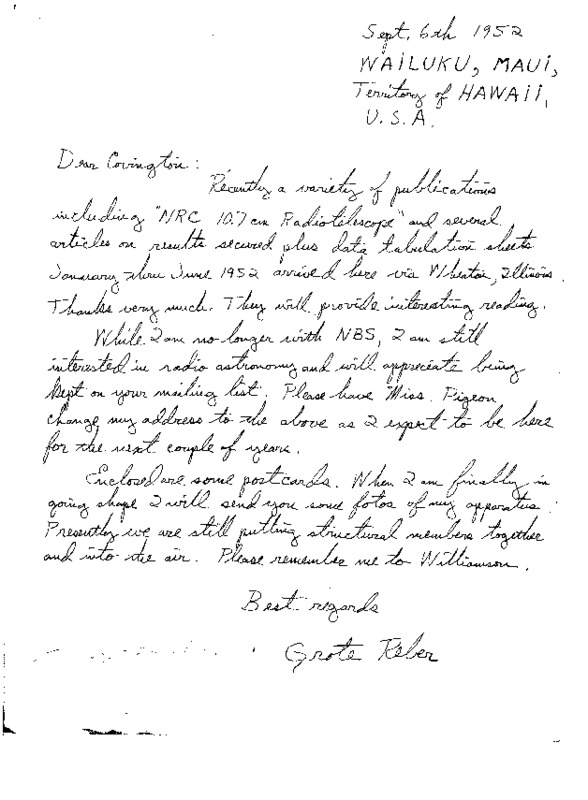 Sept. 6th 1952
WAILUKU, MAUI,
Territory of HAWAII,
U.S.A.
Dear Covington:
Recently a variety of publications
including "NRC 10.7 cm Radiotelescope" and several
articles on results secured plus data tabulation sheets
January thru June 1952 arrived here via Wheaton, Illinois.
Thanks very much. They will provide interesting reading.
While I am no longer with NBS, I am still
interested in radio astronomy and will appreciate being
kept on your mailing list. Please have Miss. Pigeon
change my address to the above as I expect to be here
for the next couple of years.
Enclosed are some postcards. When I am finally in
going shape I will send you some fotos of my apparatus.
Presently we are still putting structural members together
and into the air. Please remember me to Williamson.
Best regards
Grote Reber